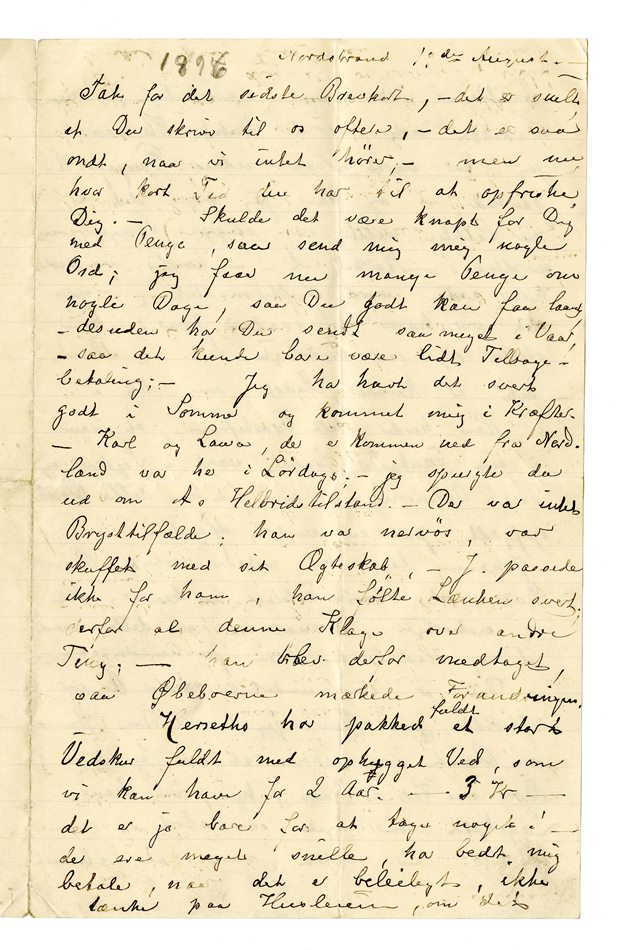 1896
Nordstrand de August. —
Tak for det sidste Brevkort, — det er snilt
at Du skriver til os oftere, — det er saa
ondt, naar vi intet hører, — men nu
hvor kort Tid Du har til at opfriske
Dig. — Skulde det være knapt for Dig
med Penge, saa send mig mig nogle
Ord; jeg faar nu mange Penge om
nogle Dage, saa Du godt kan faa laant,
— desuden har Du sendt saa meget i Vaar,
— saa det kunde bare være lidt Tilbage-
betaling; — Jeg har havt det svert
godt i Sommer og kommet mig i Kræfter.
— Karl og Laura, der er kommen ned fra Nord-
land var her i Lördags; — jeg spurgte da
ud om As Helbredstilstand. — Der var intet
Brysttilfælde, han var nervös, var
skuffet med sit Ægteskab, — J. passede
ikke for ham, han følte Lænken svert,
derfor al denne Klage over andre
Ting; — han blev derfor medtaget,
saa Øbeboerne mærkede Forandringen.
Herseths har pakked fuldt et stort
Vedskur fuldt med ophugget Ved, som
vi kan have for 2 Aar. — 3 Kr —
det er jo bare for at tage noget! —
de ere meget snille, har bedt mig
betale, naar det er beleiligt, ikke
tænke paa Huslejen, om det